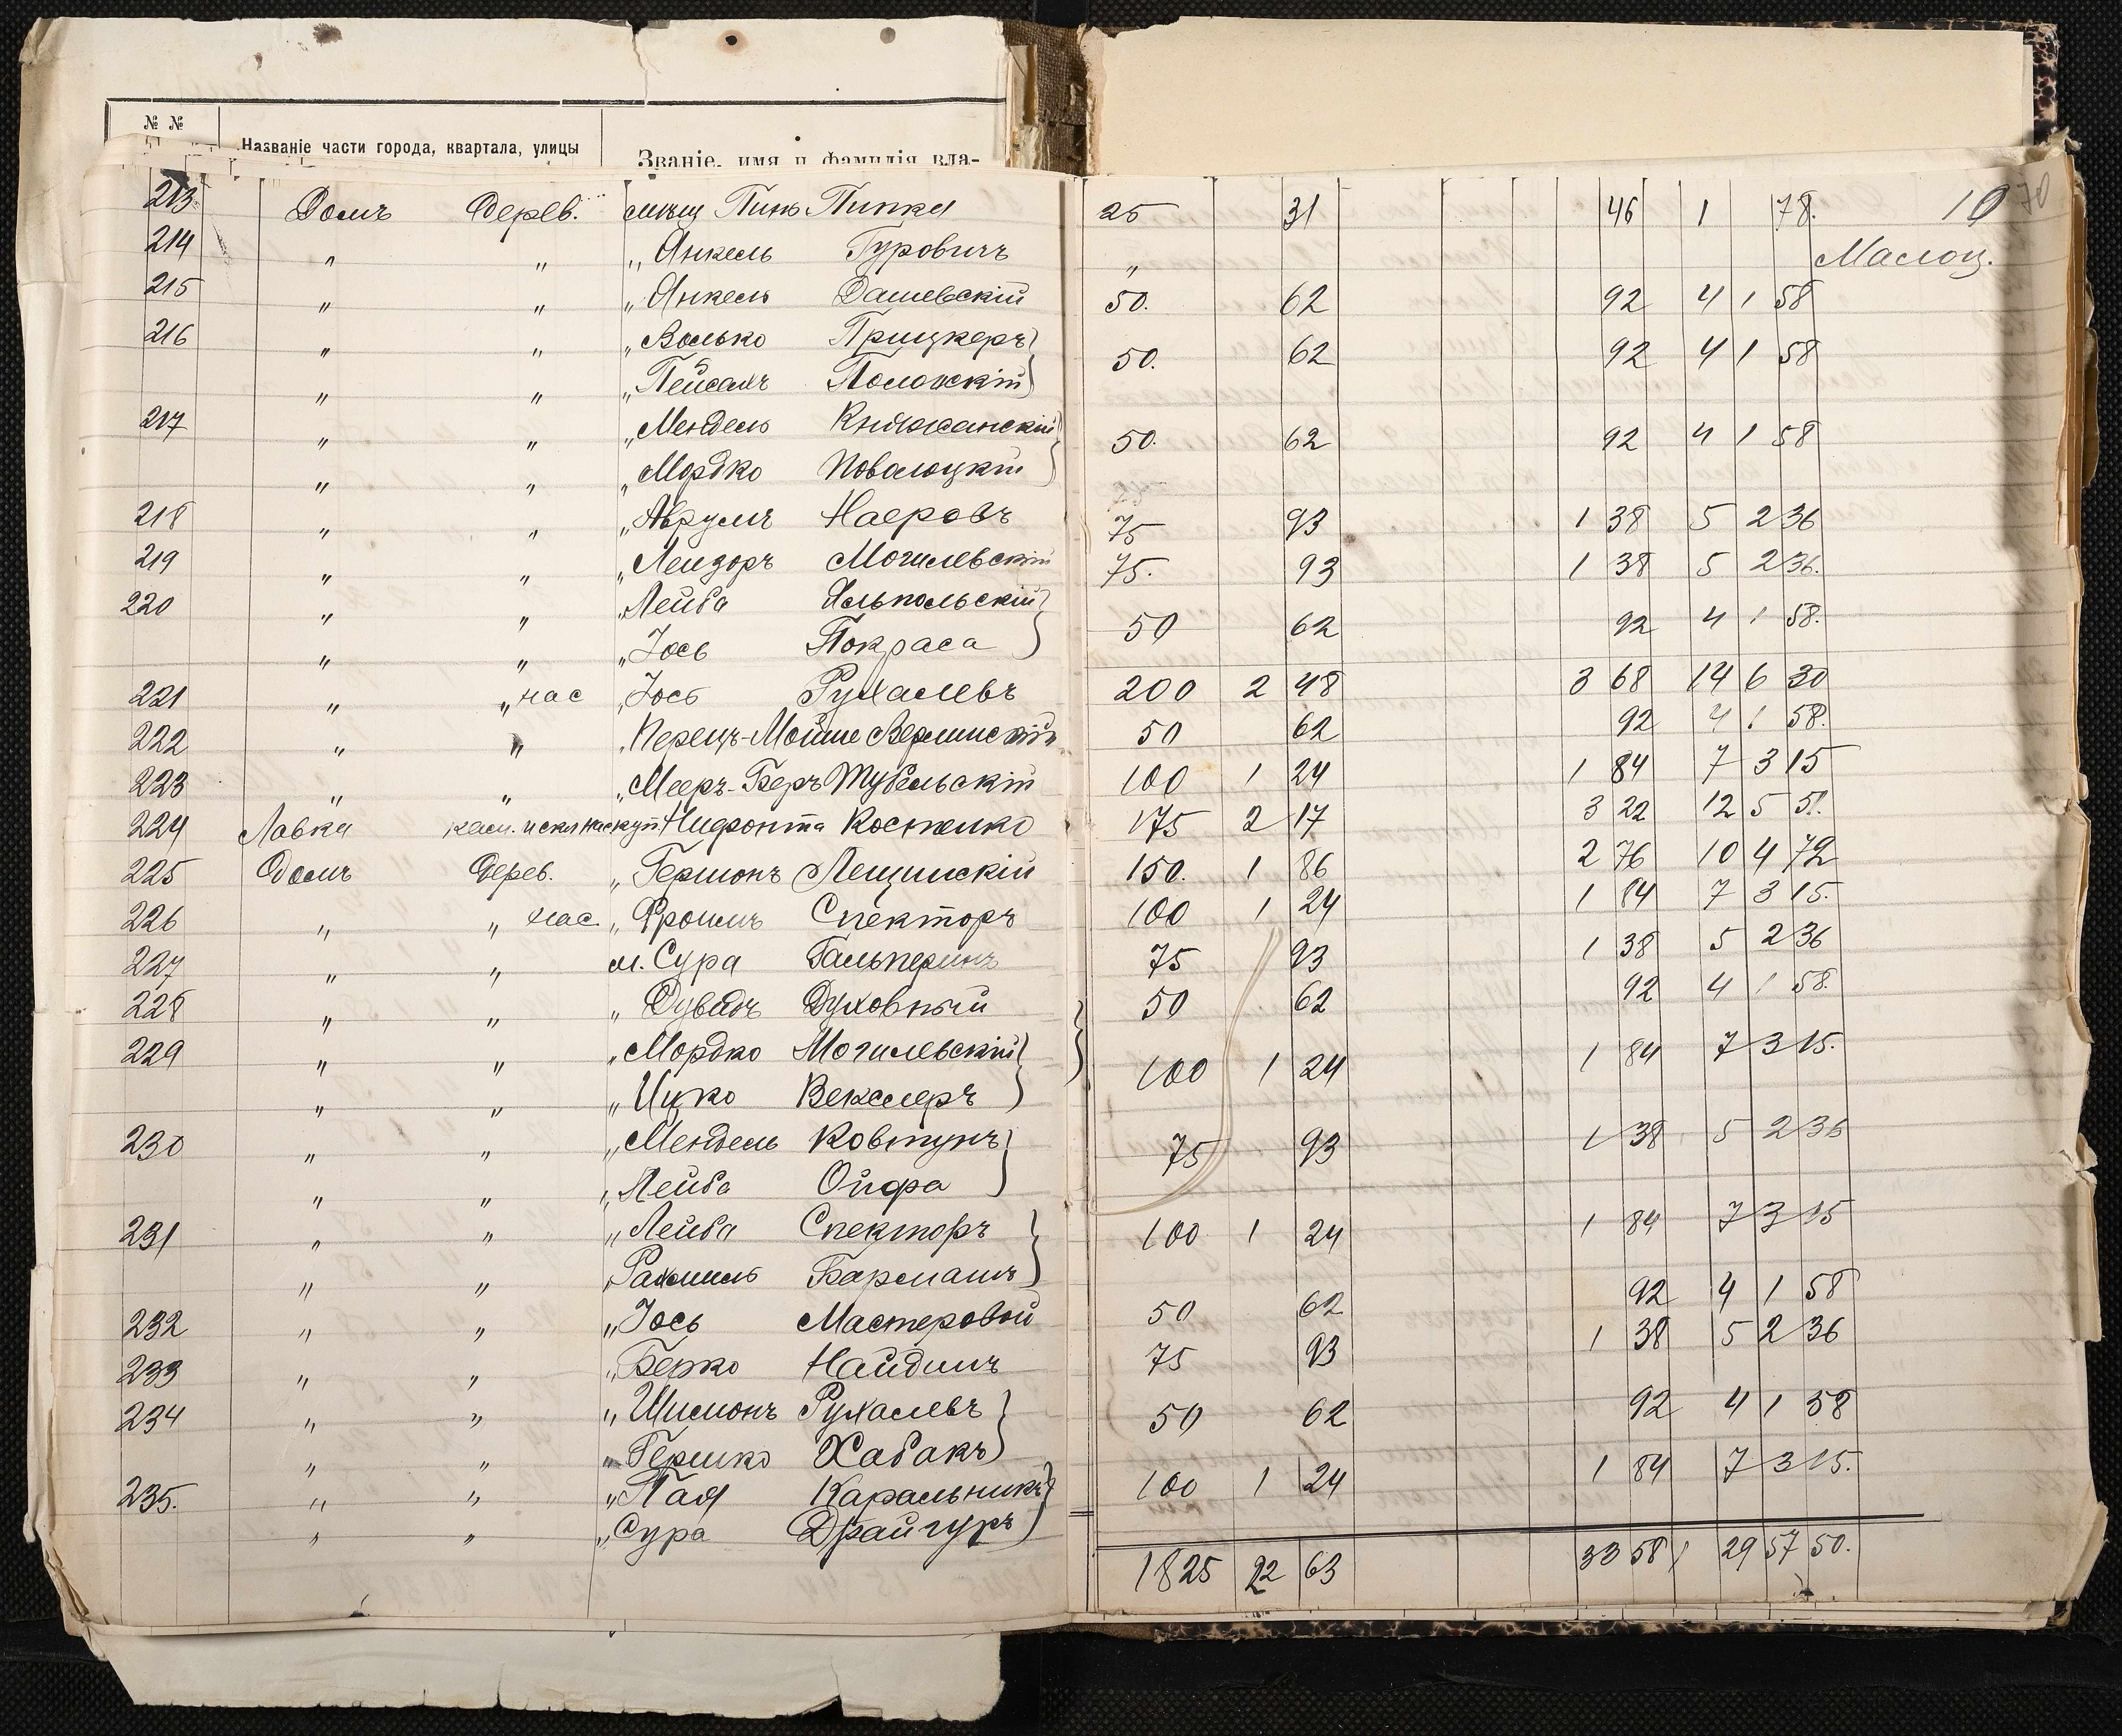 № №
Названіе части города, квартала, улицы
Званіе, имя и фамилія вла-
213 Домъ Дерев. мѣщ Пинь Пипка 25 31 46 1 78. 10 70
214 „ „ „ Янкель Гуровичъ „ Малоц.
215 „ „ „ Янкель Дашевскій 50. 62 92 4 1 58
216 „ „ „ Волько Прицкеръ 50. 62 92 4 1 58
„ „ „ Пейсахъ Полонскій
217 „ „ „ Мендель Княжанскій 50. 62 92 4 1 58
„ „ „ Мордко Поволоцкій
218 „ „ „ Аврумъ Наеровъ 75 93 1 38 5 2 36
219 „ „ „ Лейзоръ Могилевскій 75. 93 1 38 5 2 36.
220 „ „ „ Лейба Ямпольскій 50 62 92 4 1 58.
„ „ „ Іось Покраса
221 „ „ нас „ Іось Рухалевъ 200 2 48 3 68 14 6 30
222 „ „ „ Перецъ-Мойше Верлинскій 50 62 92 4 1 58.
223 „ „ „ Мееръ-Беръ Тубельскій 100 1 24 1 84 7 3 15
224 Лавка Костенко 175 2 17 3 22 12 5 51
225 Домъ Дерев. „ Гершонъ Лещинскій 150. 1 86 2 76 10 4 72
226 „ „ нас. „ Фроимъ Спекторъ 100 1 24 1 84 7 3 15.
227 „ „ м. Сура Гальперинъ 75 93 1 38 5 2 36
228 „ „ „ Дувидъ Духовный 50 62 92 4 1 58.
229 „ „ „ Мордко Могилевскій 100 1 24 1 84 7 3 15.
„ „ „ Ицко Векслеръ
230 „ „ „ Мендель Ковтунъ 75 93 1 38 5 2 36
„ „ „ Лейба Ойфа
231 „ „ „ Лейба Спекторъ 100 1 24 1 84 7 3 15
„ „ „ Рахмиль Барманъ
232 „ „ „ Іось Мастеровой 50 62 92 4 1 58
233 „ „ „ Берко Найдисъ 75 93 1 38 5 2 36
234 „ „ „ Шимонъ Рухалевъ 50 62 92 4 1 58
„ „ „ Гершко Хабакъ
235. „ „ „ Пая Каральникъ 100 1 24 1 84 7 3 15.
„ „ „ Сура Драйгуръ
1825 22 63 33 58 1 29 57 50.